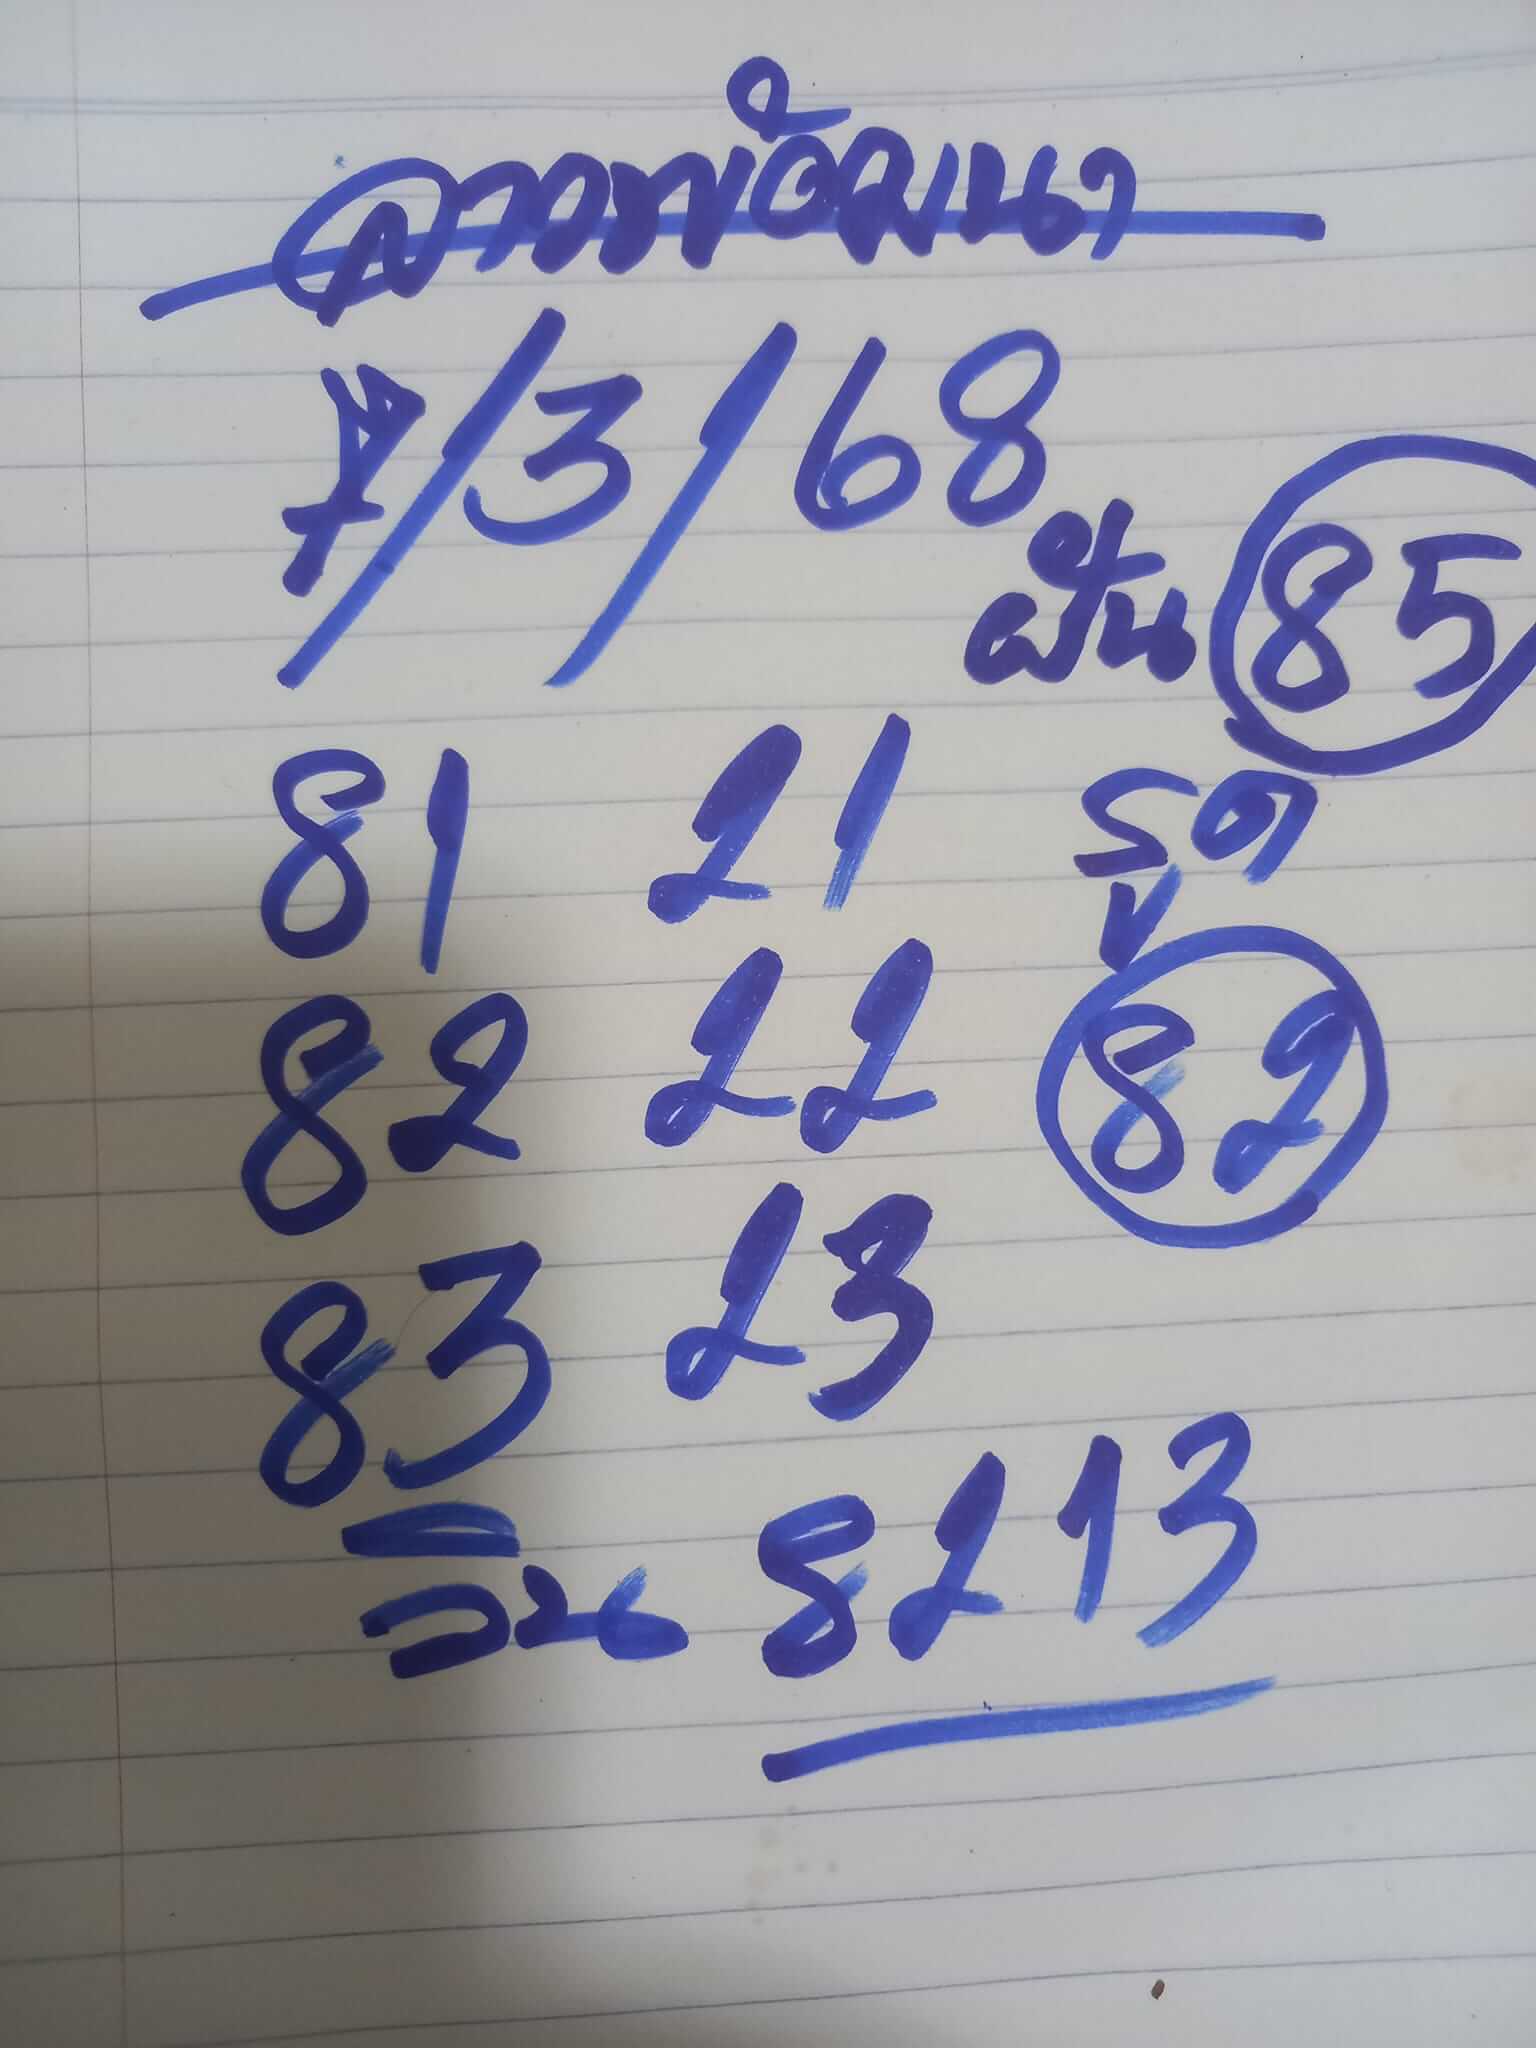 ลาวพัฒนา
7/3/68
ฝัน 85
81 21 รูด
82 22 82
83 23
วิน 8213